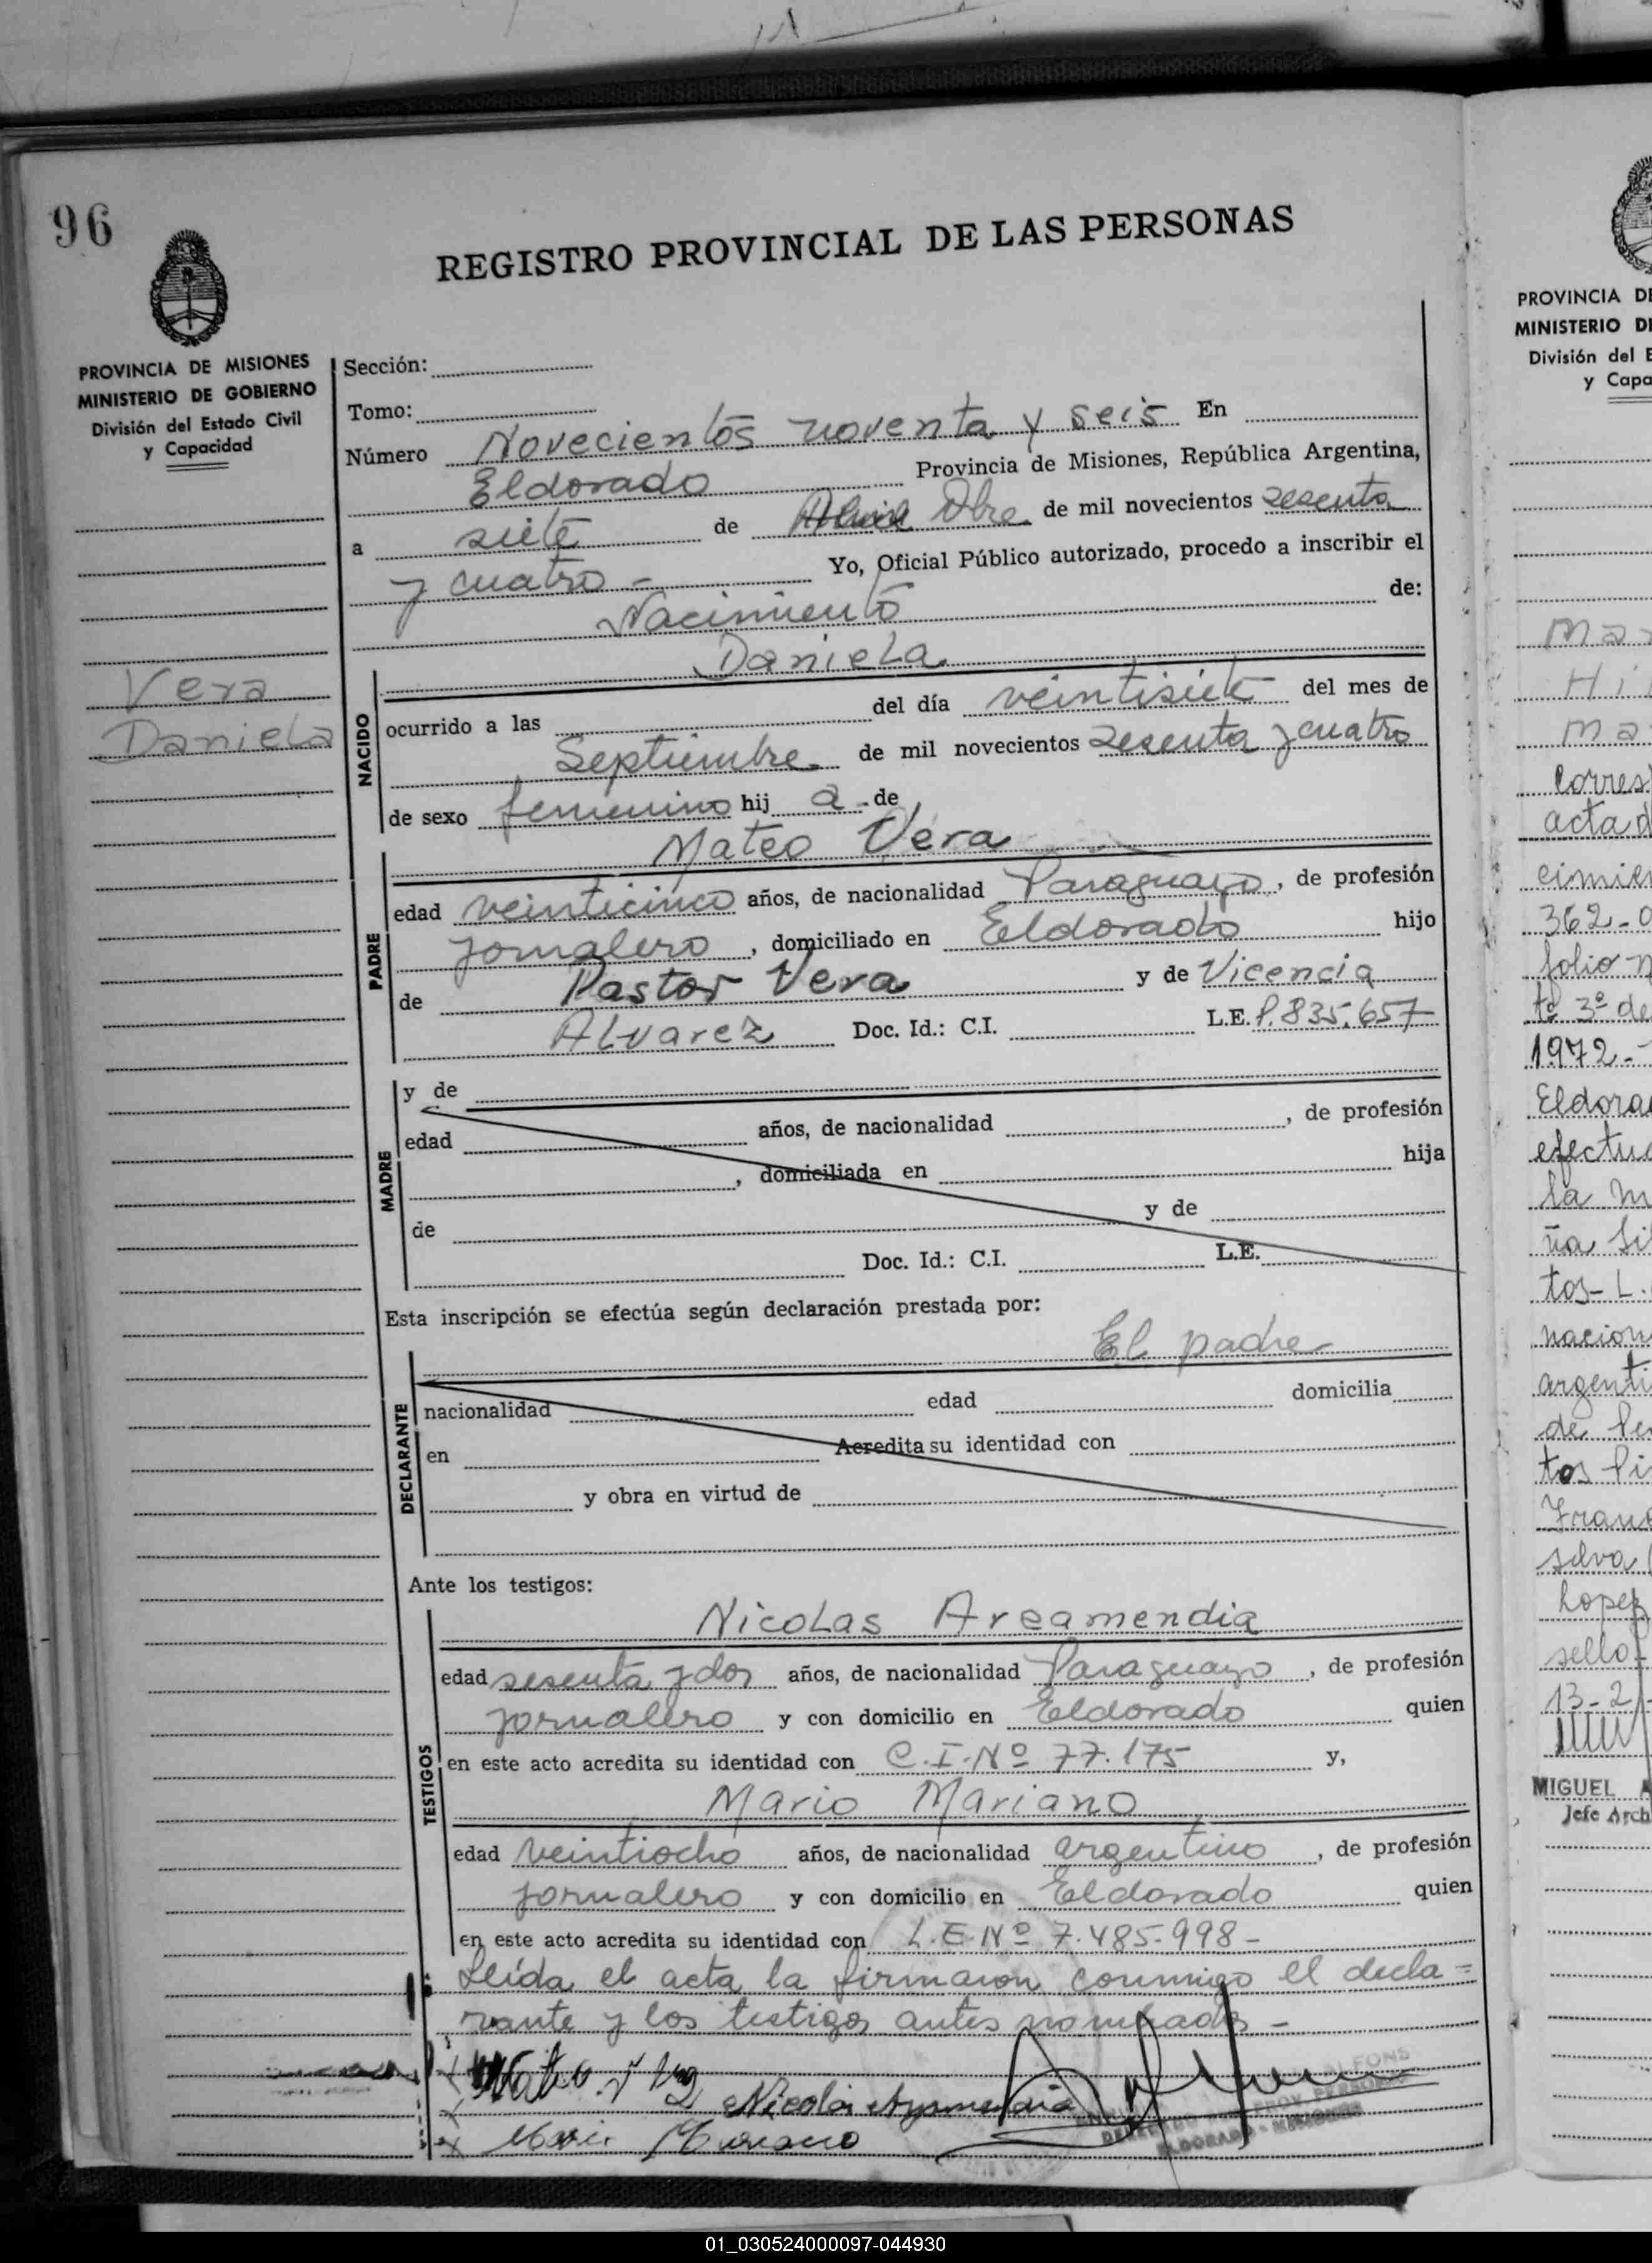 96
REGISTRO PROVINCIAL DE LAS PERSONAS
PROVINCIA DE MISIONES
MINISTERIO DE GOBIERNO
División del Estado Civil
y Capacidad
Vera
Daniela
Sección:
Tomo:
Número Novecientos noventa y seis En
Eldorado Provincia de Misiones, República Argentina,
a siete de Dbre. de mil novecientos sesenta
y cuatro - Yo, Oficial Público autorizado, procedo a inscribir el
Nacimiento de:
Daniela
NACIDO
ocurrido a las del día veintisiete del mes de
Septiembre de mil novecientos sesenta y cuatro
de sexo femenino hij a de
Mateo Vera
PADRE
edad veinticinco años, de nacionalidad Paraguayo, de profesión
jornalero, domiciliado en Eldorado hijo
de Pastor Vera y de Vicencia
Alvarez Doc. Id.: C.I. L.E. P.835.657
MADRE
y de
edad años, de nacionalidad , de profesión
, domiciliada en hija
de y de
Doc. Id.: C.I. L.E.
Esta inscripción se efectúa según declaración prestada por:
El padre
DECLARANTE
nacionalidad edad domicilia
en Acredita su identidad con
y obra en virtud de
Ante los testigos:
Nicolas Areamendia
TESTIGOS
edad sesenta y dos años, de nacionalidad Paraguayo, de profesión
jornalero y con domicilio en Eldorado quien
en este acto acredita su identidad con C.I.Nº 77.175 y,
Mario Mariano
edad veintiocho años, de nacionalidad argentino, de profesión
jornalero y con domicilio en Eldorado quien
en este acto acredita su identidad con L.E.Nº 7.485.998-
Leída el acta la firmaron conmigo el decla=
rante y los testigos antes nombrados -
Mateo
Nicolas Aysmendia
Mario Mariano
ALFONS
PROV. PERSONAS
ELDORADO - MISIONES
PROVINCIA DE
MINISTERIO DE
División del E
y Capa
Mar
Hi
Ma
Corres
acta d
cimien
362-
folio
tº 3º de
1972-
Eldora
efectu
la m
ña Sil
tos- L.
nacion
argenti
de
tos
Franc
silva
Lopez
sello-
13-2
MIGUEL A
Jefe Arch
01_030524000097-044930